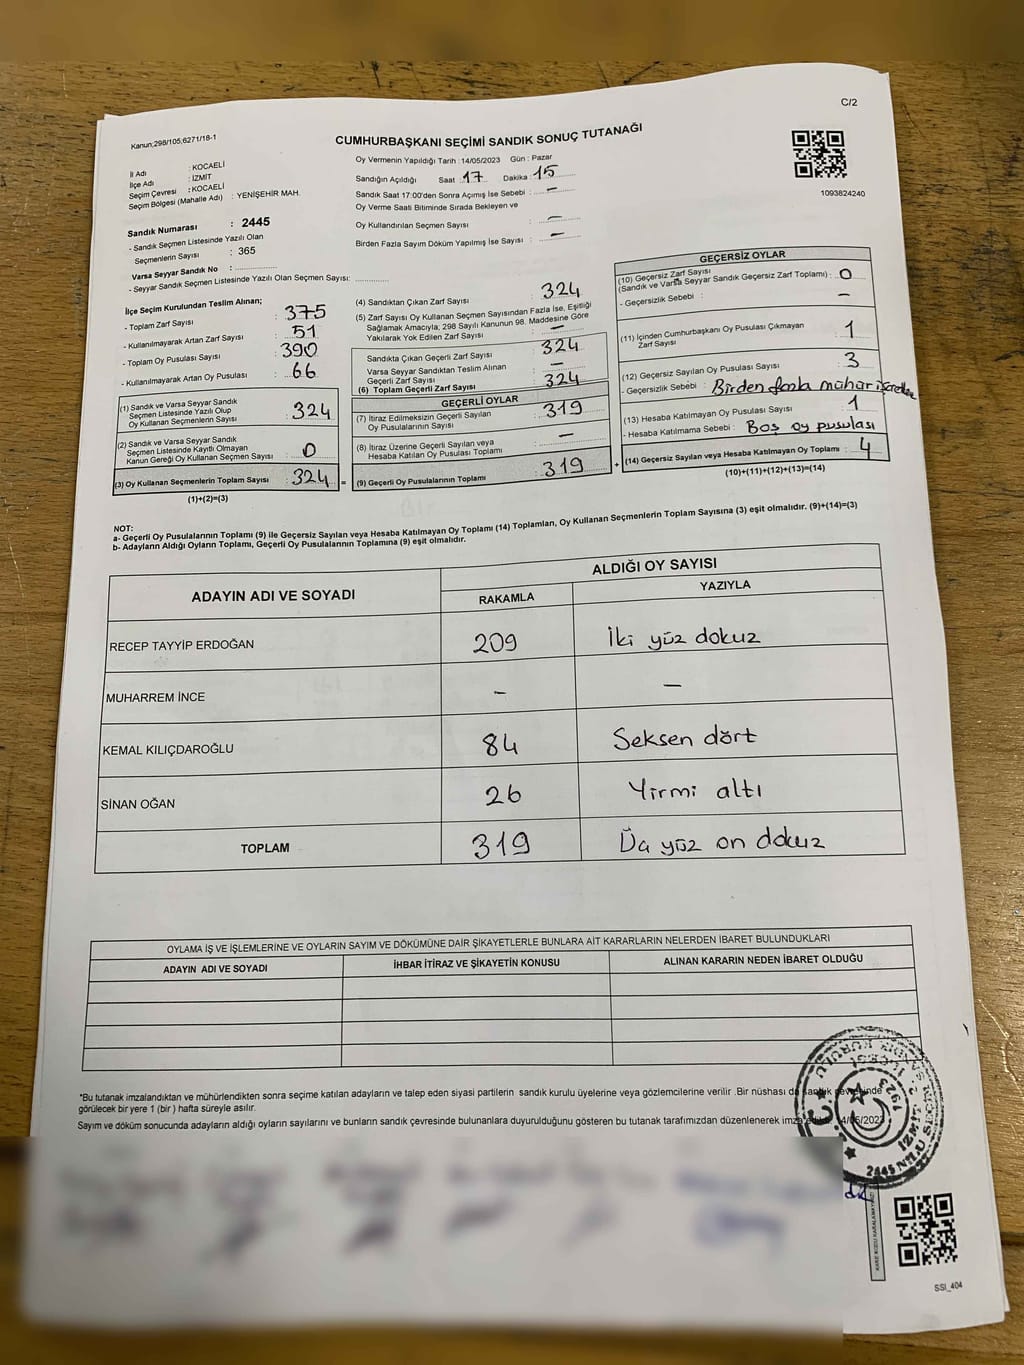 C/2
Kanun;298/105,6271/18-1
CUMHURBAŞKANI SEÇİMİ SANDIK SONUÇ TUTANAĞI
1093824240
İl Adı : KOCAELİ
İlçe Adı : İZMİT
Seçim Çevresi : KOCAELİ
Seçim Bölgesi (Mahalle Adı) : YENİŞEHİR MAH.
Sandık Numarası : 2445
- Sandık Seçmen Listesinde Yazılı Olan
Seçmenlerin Sayısı : 365
Varsa Seyyar Sandık No :
- Seyyar Sandık Seçmen Listesinde Yazılı Olan Seçmen Sayısı:
Oy Vermenin Yapıldığı Tarih :14/05/2023 Gün : Pazar
Sandığın Açıldığı Saat : 17 Dakika : 15
Sandık Saat 17:00'den Sonra Açımış İse Sebebi : —
Oy Verme Saati Bitiminde Sırada Bekleyen ve
Oy Kullandırılan Seçmen Sayısı : —
Birden Fazla Sayım Döküm Yapılmış İse Sayısı : —
İlçe Seçim Kurulundan Teslim Alınan;
- Toplam Zarf Sayısı : 375
- Kullanılmayarak Artan Zarf Sayısı : 51
- Toplam Oy Pusulası Sayısı : 390
- Kullanılmayarak Artan Oy Pusulası : 66
(1) Sandık ve Varsa Seyyar Sandık
Seçmen Listesinde Yazılı Olup
Oy Kullanan Seçmenlerin Sayısı : 324
(2) Sandık ve Varsa Seyyar Sandık
Seçmen Listesinde Kayıtlı Olmayan
Kanun Gereği Oy Kullanan Seçmen Sayısı : 0
(3) Oy Kullanan Seçmenlerin Toplam Sayısı : 324 =
(1)+(2)=(3)
(4) Sandıktan Çıkan Zarf Sayısı : 324
(5) Zarf Sayısı Oy Kullanan Seçmen Sayısından Fazla İse, Eşitliği
Sağlamak Amacıyla, 298 Sayılı Kanunun 98. Maddesine Göre
Yakılarak Yok Edilen Zarf Sayısı : —
Sandıkta Çıkan Geçerli Zarf Sayısı : 324
Varsa Seyyar Sandıktan Teslim Alınan
Geçerli Zarf Sayısı : —
(6) Toplam Geçerli Zarf Sayısı : 324
GEÇERLİ OYLAR
(7) İtiraz Edilmeksizin Geçerli Sayılan
Oy Pusulalarının Sayısı : 319
(8) İtiraz Üzerine Geçerli Sayılan veya
Hesaba Katılan Oy Pusulası Toplamı : —
(9) Geçerli Oy Pusulalarının Toplamı : 319 +
GEÇERSİZ OYLAR
(10) Geçersiz Zarf Sayısı
(Sandık ve Varsa Seyyar Sandık Geçersiz Zarf Toplamı) : 0
- Geçersizlik Sebebi : —
(11) İçinden Cumhurbaşkanı Oy Pusulası Çıkmayan
Zarf Sayısı : 1
(12) Geçersiz Sayılan Oy Pusulası Sayısı : 3
- Geçersizlik Sebebi : Birden fazla mühür
(13) Hesaba Katılmayan Oy Pusulası Sayısı : 1
- Hesaba Katılmama Sebebi : Boş oy pusulası
(14) Geçersiz Sayılan veya Hesaba Katılmayan Oy Toplamı : 4
(10)+(11)+(12)+(13)=(14)
NOT:
a- Geçerli Oy Pusulalarının Toplamı (9) ile Geçersiz Sayılan veya Hesaba Katılmayan Oy Toplamı (14) Toplamları, Oy Kullanan Seçmenlerin Toplam Sayısına (3) eşit olmalıdır. (9)+(14)=(3)
b- Adayların Aldığı Oyların Toplamı, Geçerli Oy Pusulalarının Toplamına (9) eşit olmalıdır.
ADAYIN ADI VE SOYADI ALDIĞI OY SAYISI
RAKAMLA YAZIYLA
RECEP TAYYİP ERDOĞAN 209 İki yüz dokuz
MUHARREM İNCE — —
KEMAL KILIÇDAROĞLU 84 Seksen dört
SİNAN OĞAN 26 Yirmi altı
TOPLAM 319 Üç yüz on dokuz
OYLAMA İŞ VE İŞLEMLERİNE VE OYLARIN SAYIM VE DÖKÜMÜNE DAİR ŞİKAYETLERLE BUNLARA AİT KARARLARIN NELERDEN İBARET BULUNDUKLARI
ADAYIN ADI VE SOYADI İHBAR İTİRAZ VE ŞİKAYETİN KONUSU ALINAN KARARIN NEDEN İBARET OLDUĞU
*Bu tutanak imzalandıktan ve mühürlendikten sonra seçime katılan adayların ve talep eden siyasi partilerin sandık kurulu üyelerine veya gözlemcilerine verilir .Bir nüshası da sandık çevresinde
görülecek bir yere 1 (bir ) hafta süreyle asılır.
Sayım ve döküm sonucunda adayların aldığı oyların sayılarını ve bunların sandık çevresinde bulunanlara duyurulduğunu gösteren bu tutanak tarafımızdan düzenlenerek imza edildi. 14/05/2023
1923
İZMİT
2445 NO.LU SEÇİM
SSI_404